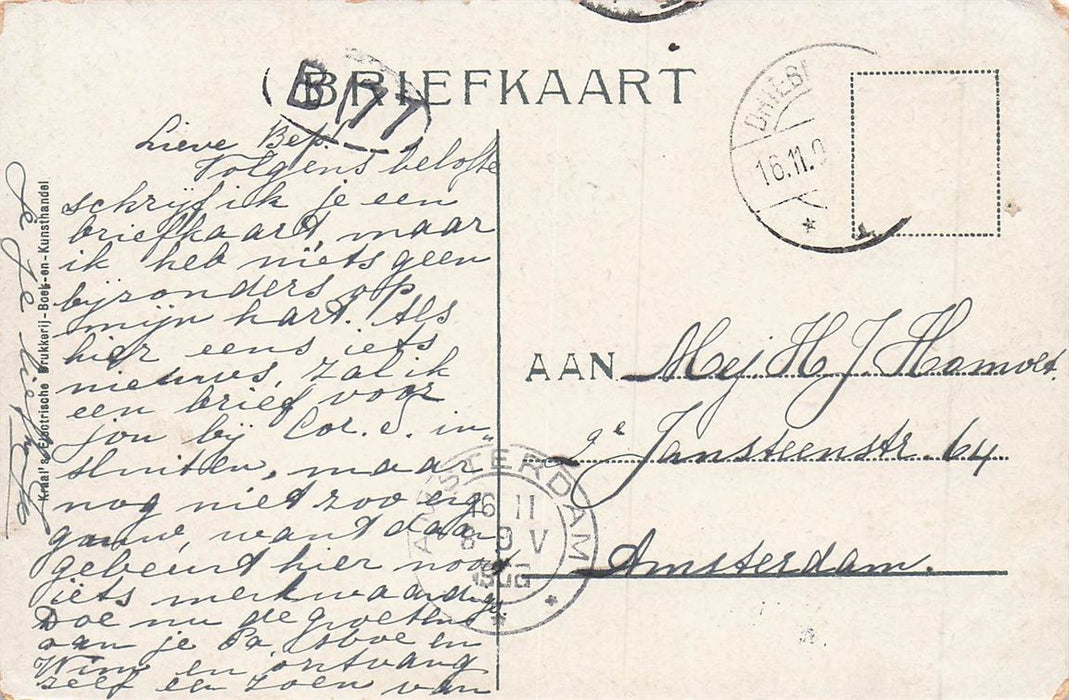 BRIEFKAART
B 177
DRIEB
16.11.0
Lieve Bep!
Volgens belofte
schrijf ik je een
briefkaart, maar
ik heb niets geen
bijzonders op
mijn hart. Als
hier eens iets
nieuws, zal ik
een brief voor
jou bij Cor. in-
sluiten, maar
nog niet zoo erg
gauw, want daar
gebeurd hier nooit
iets merkwaardigs.
Doe nu de groeten
aan je Pa, en
Wim en ontvang
zelf een zoen van
je je
Kraal's Electrische Drukkerij - Boek- en - Kunsthandel
AAN Mej H. J. Homvelt.
2e Jansteenstr. 64
Amsterdam.
AMSTERDAM
16 11
8-9 V
190